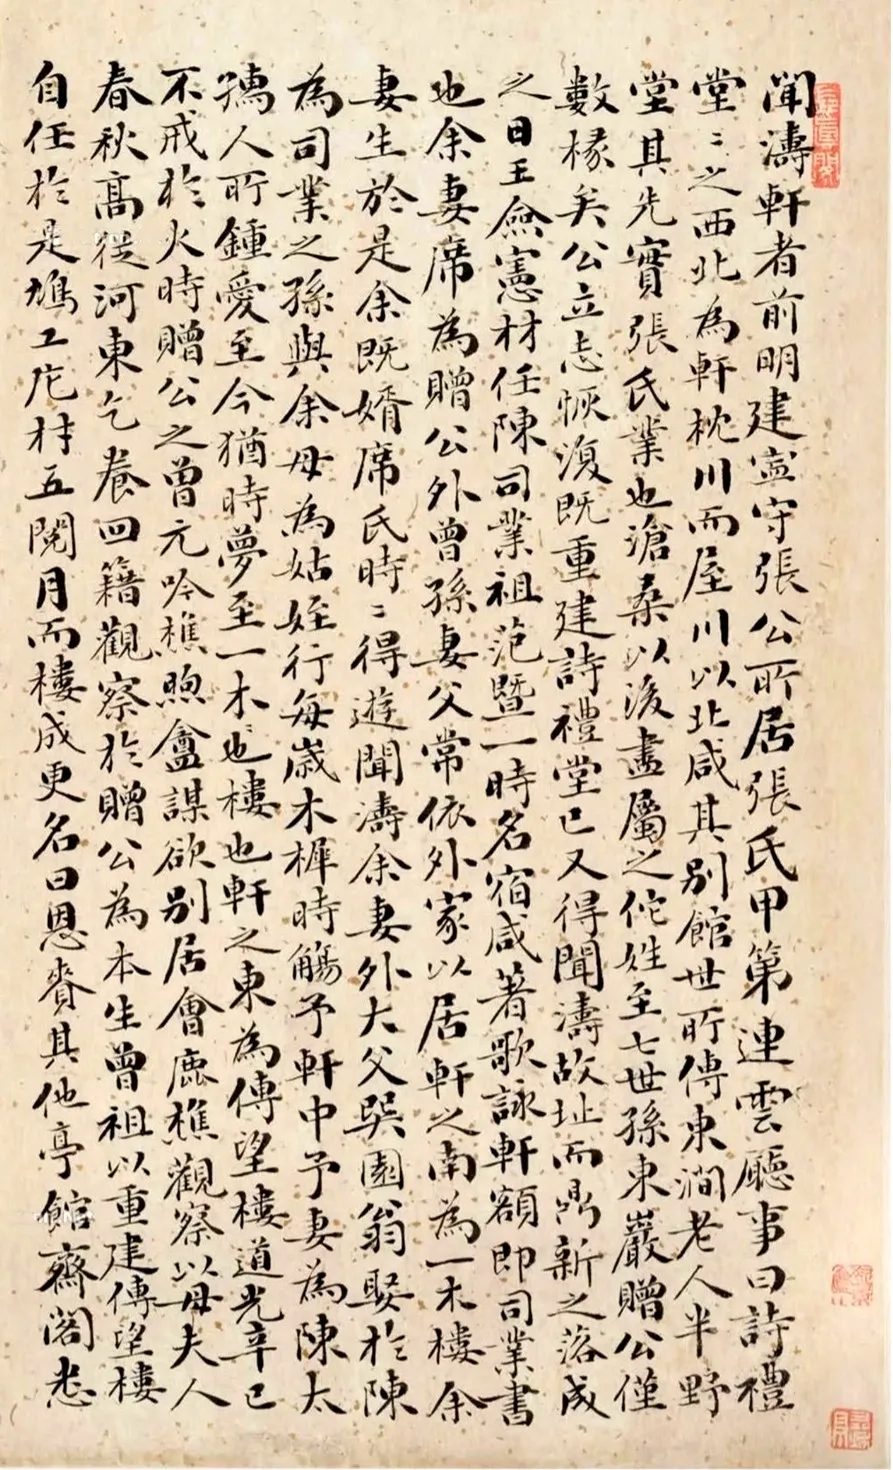 聞濤軒者前明建寧守張公所居張氏甲第連雲廳事曰詩禮
堂〻之西北為軒枕川而屋川以北咸其別館世所傳東澗老人半野
堂其先實張氏業也滄桑以後盡屬之佗姓至七世孫東巖贈公僅
數椽矣公立志恢復既重建詩禮堂已又得聞濤故址而鼎新之落成
之日王僉憲材任陳司業祖范暨一時名宿咸著歌詠軒額即司業書
也余妻席為贈公外曾孫妻父常依外家以居軒之南為一木樓余
妻生於是余既婿席氏時〻得遊聞濤余妻外大父吳園翁娶於陳
為司業之孫與余母為姑姪行每歲木樨時觴予軒中予妻為陳太
孺人所鍾愛至今猶時夢至一木也樓也軒之東為傳望樓道光辛巳
不戒於火時贈公之曾元吟樵煦龕謀欲別居會鹿樵觀察以母夫人
春秋高從河東乞養回籍觀察於贈公為本生曾祖以重建傳望樓
自任於是鳩工庀材五閱月而樓成更名曰恩賚其他亭館齋閣悉